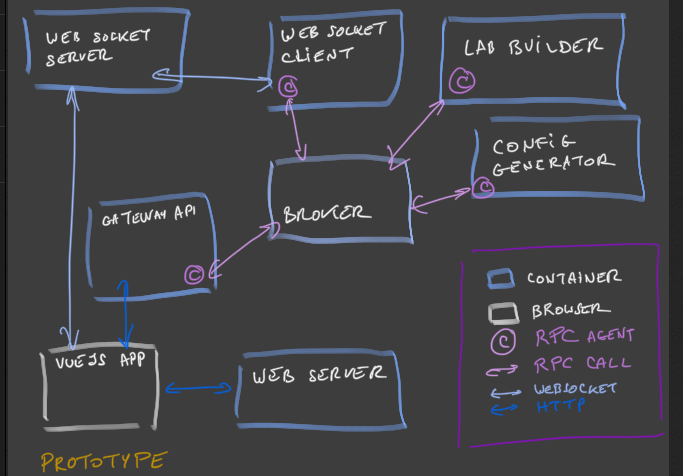 WEB SOCKET
SERVER
WEB SOCKET
CLIENT
C
LAB BUILDER
C
CONFIG
GENERATOR
C
BROKER
GATEWAY API
C
VUEJS APP
WEB SERVER
CONTAINER
BROWSER
C
RPC AGENT
RPC CALL
WEBSOCKET
HTTP
PROTOTYPE